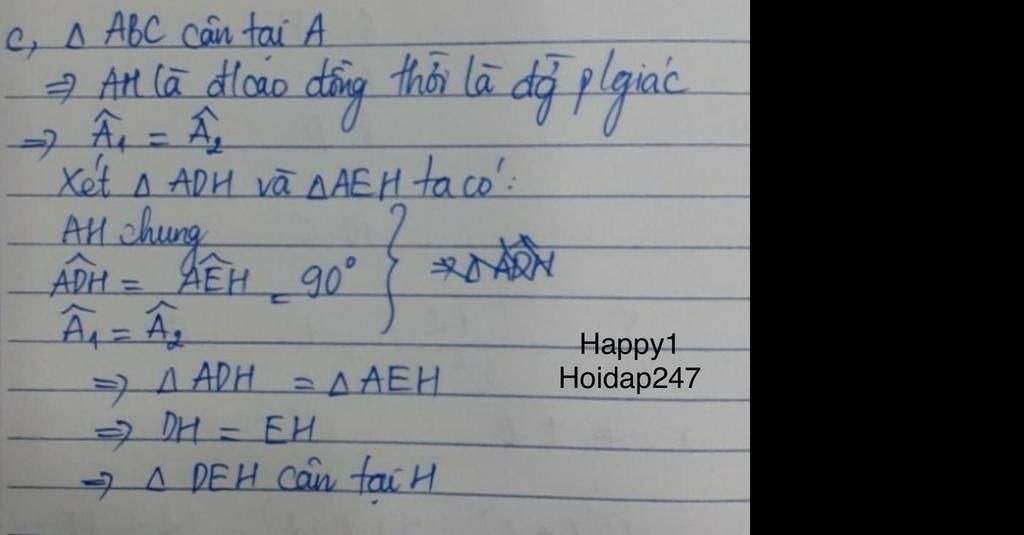 c, Δ ABC cân tại A
⇒ AH là đ/cao đồng thời là đg p/giác
⇒ Â₁ = Â₂
Xét Δ ADH và Δ AEH ta có:
AH chung
ADH^ = AEH^ = 90°
Â₁ = Â₂
⇒ Δ ADH = Δ AEH
⇒ DH = EH
⇒ Δ DEH cân tại H
Happy1
Hoidap247